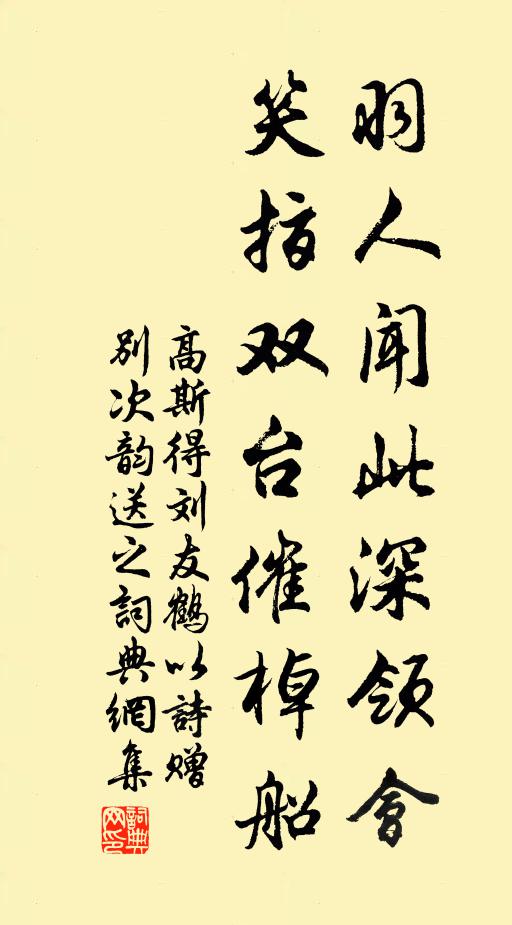 羽人闻此深领會
笑指双台催棹船
高斯得刘友鹤以詩赠
别次韵送之詞典網集
詞典
网印